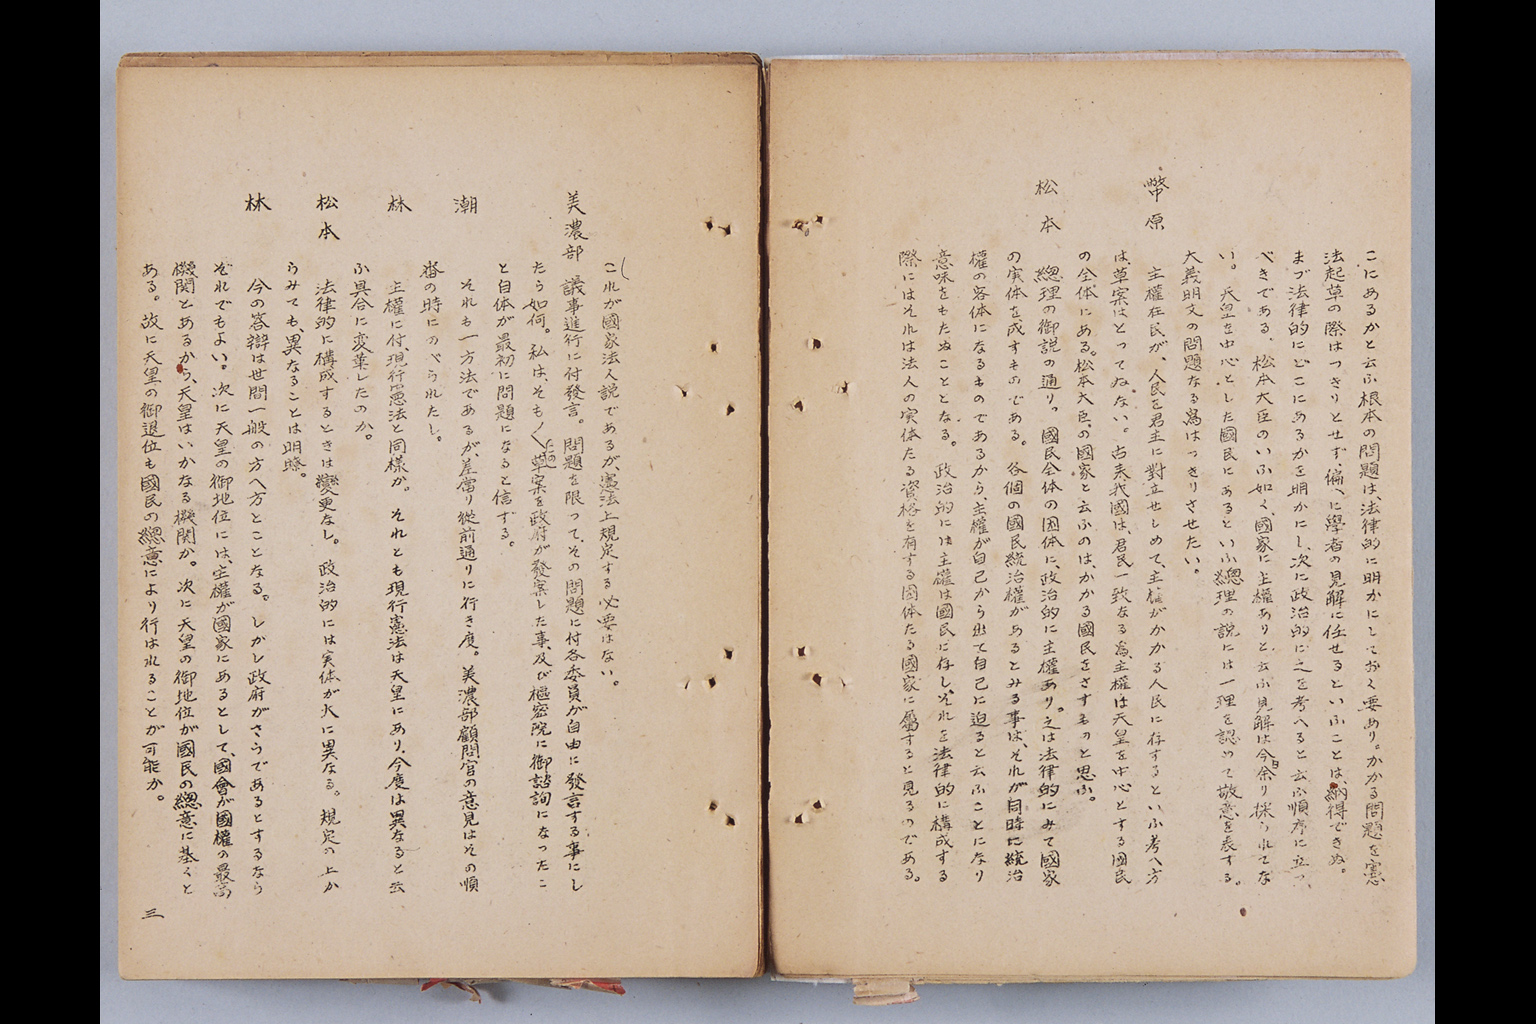 こにあるかと云ふ根本の問題は、法律的に明かにしておく要あり。かかる問題を憲
法起草の際はつきりとせず、偏へに學者の見解に任せるといふことは、納得できぬ。
まづ法律的にどこにあるかを明かにし、次に政治的に之を考へると云ふ順序に立つ
べきである。松本大臣のいふ如く、國家に主權ありと云ふ見解は今日余り採られてな
い。天皇を中心とした國民にあるといふ總理の説には一理を認めて敬意を表する。
大義明文の問題なる為はつきりさせたい。
幣原 主權在民が、人民を君主に對立せしめて、主權がかかる人民に存するといふ考へ方
は、草案はとつてゐない。古来我國は、君民一致なる為、主權は天皇を中心とする國民
の全体にある。松本大臣の國家と云ふのは、かかる國民をさすものと思ふ。
松本 總理の御説の通り。國民全体の団体に、政治的に主權あり。之は法律的にみて國家
の実体を成すものである。各個の國民統治權があるとみる事は、それが同時に統治
權の客体になるものであるから、主權が自己から出て自己に迫ると云ふことになり
意味をもたぬこととなる。政治的には主權は國民に存し、それを法律的に構成する
際にはそれは法人の実体たる資格を有する團体たる國家に屬すると見るのである。
これが國家法人説であるが、憲法上規定する必要はない。
美濃部 議事進行に付發言。問題を限つて、その問題に付各委員が自由に發言する事にし
たら如何。私は、そも〱この草案を政府が發案した事、及び樞密院に御諮詢になつたこ
と自体が最初に問題になると信ずる。
潮 それも一方法であるが、差當り從前通りに行き度。美濃部顧問官の意見はその順
番の時にのべられたし。
林 主權に付、現行憲法と同様か。それとも現行憲法は天皇にあり、今度は異なると云
ふ具合に変革したのか。
松本 法律的に構成するときは変更なし。政治的には実体が大に異なる。規定の上か
らみても、異なることは明瞭。
林 今の答辯は世間一般の方へ方とことなる。しかし政府がさうであるとするなら
それでもよい。次に天皇の御地位には、主權が國家にあるとして、國會が國權の最高
機関とあるから、天皇はいかなる機関か。次に天皇の御地位が國民の總意に基くと
ある。故に天皇の御退位も國民の總意により行はれることが可能か。
三